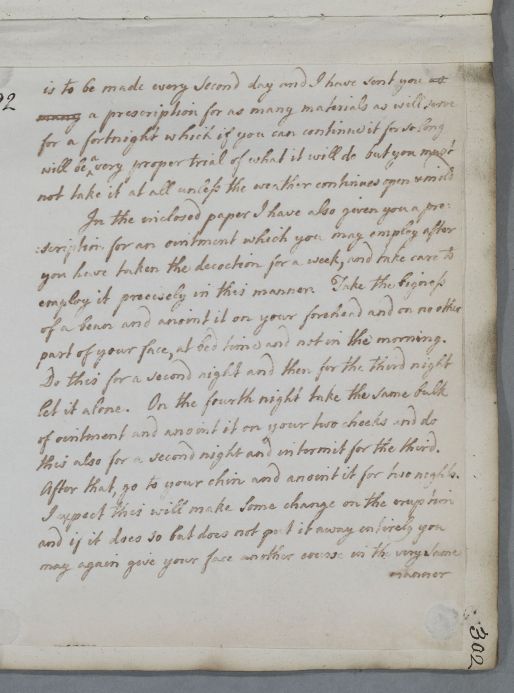 is to be made every second day and I have sent you as
many a prescription for as many materials as will serve
for a fortnight which if you can continue it for so long
will be a very proper trial of what it will do but you must
not take it at all unless the weather continues open & mild
In the inclosed paper I have also given you a pre:
:scription for an ointment which you may employ after
you have taken the decoction for a week, and take care to
employ it precisely in this manner. Take the bigness
of a bean and anoint it on your forehead and on no other
part of your face, at bed time and not in the morning.
Do this for a second night and then for the third night
let it alone. On the fourth night take the same bulk
of ointment and anoint it on your two cheeks and do
this also for a second night and intermit for the third.
After that, go to your chin and anoint it for two nights.
I expect this will make some change on the eruption
and if it does so but does not put it away entirely you
may again give your face another course in the very same
manner
302